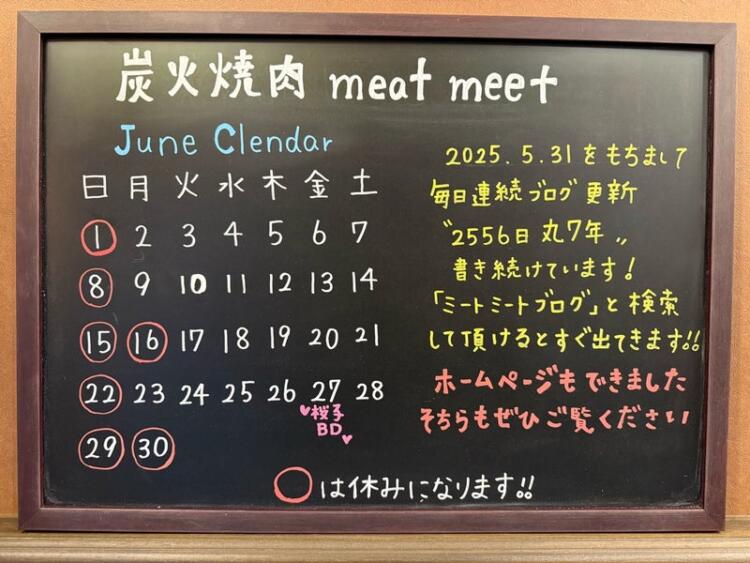 炭火焼肉 meat meet
June Clendar
日 月 火 水 木 金 土
1 2 3 4 5 6 7
8 9 10 11 12 13 14
15 16 17 18 19 20 21
22 23 24 25 26 27 28
桜子
BD
29 30
2025.5.31をもちまして
毎日連続ブログ更新
〝2556日 丸7年〟
書き続けています!
「ミートミートブログ」と検索
して頂けるとすぐ出てきます!!
ホームページもできました
そちらもぜひご覧ください
○は休みになります!!